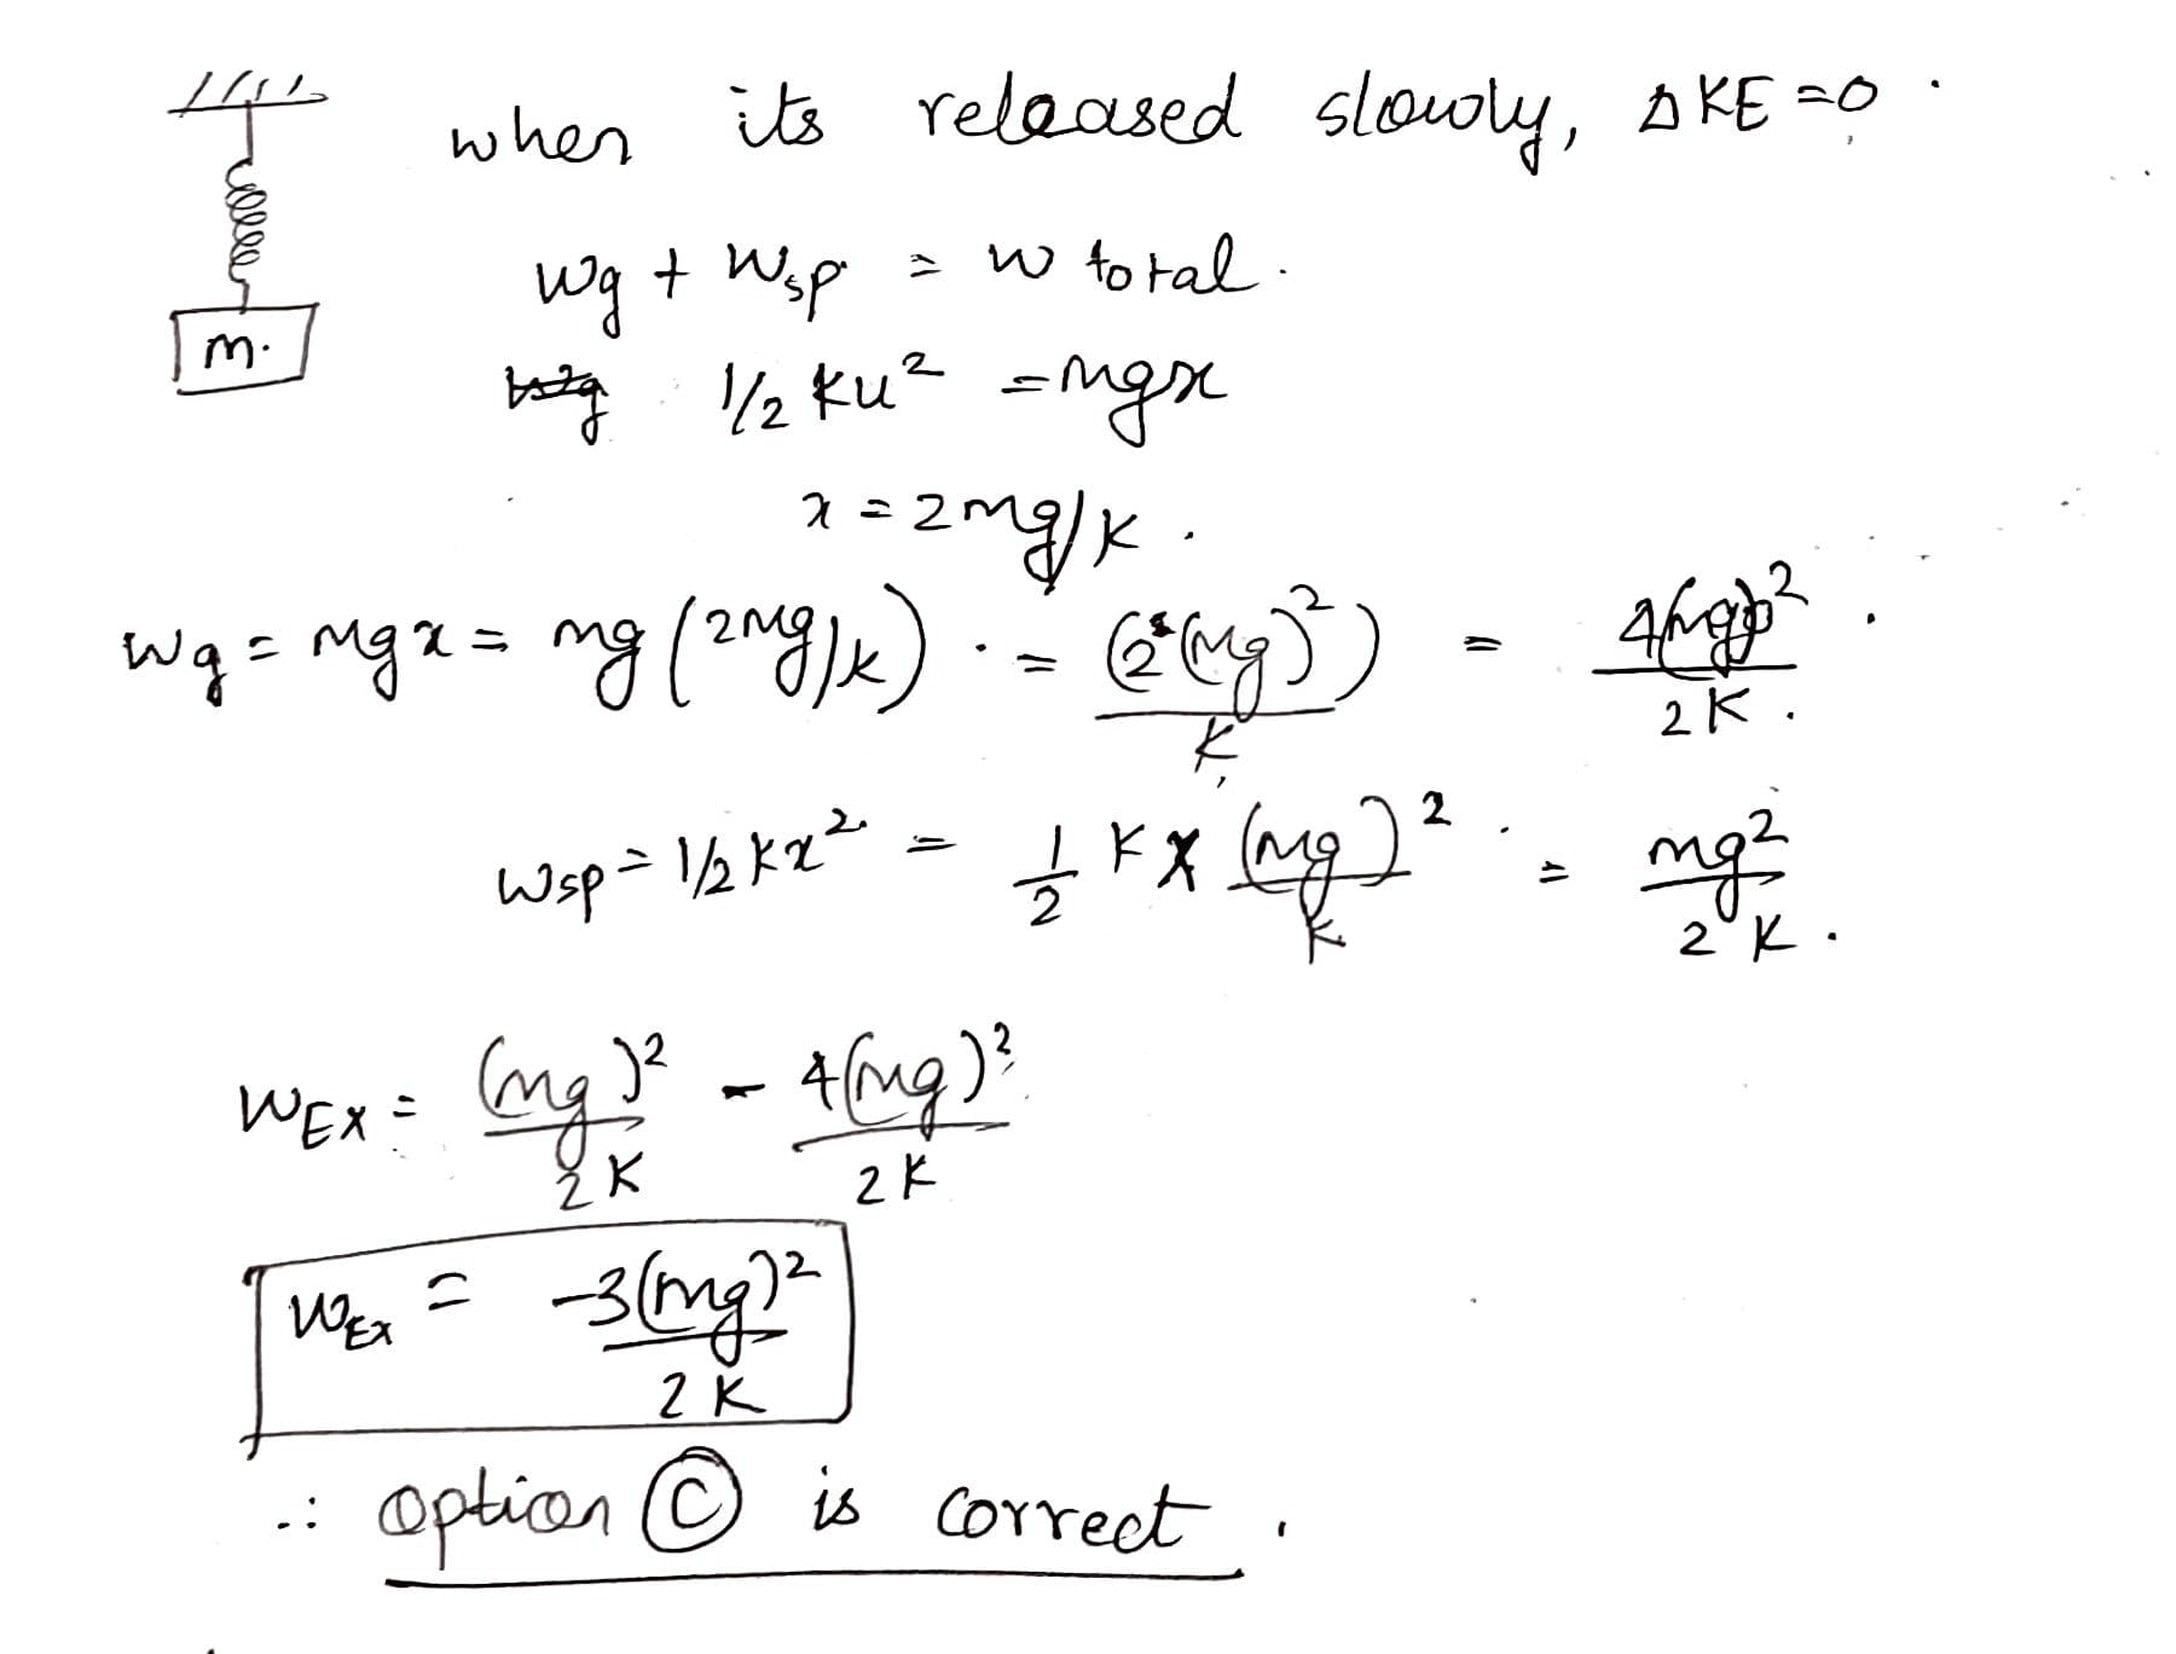 when its released slowly, ΔKE=0.
m.
Wg + Wsp = W total.
1/2 Ku² = mgx
x = 2mg/K.
Wg = Mgx = mg (2Mg/K). = (2(Mg)²)/K = 4(mg)²/2K.
Wsp = 1/2 Kx² = 1/2 K x (mg/K)² = mg²/2K.
WEX = (mg)²/2K - 4(mg)²/2K
WEX = -3(mg)²/2K
∴ option Ⓒ is correct.